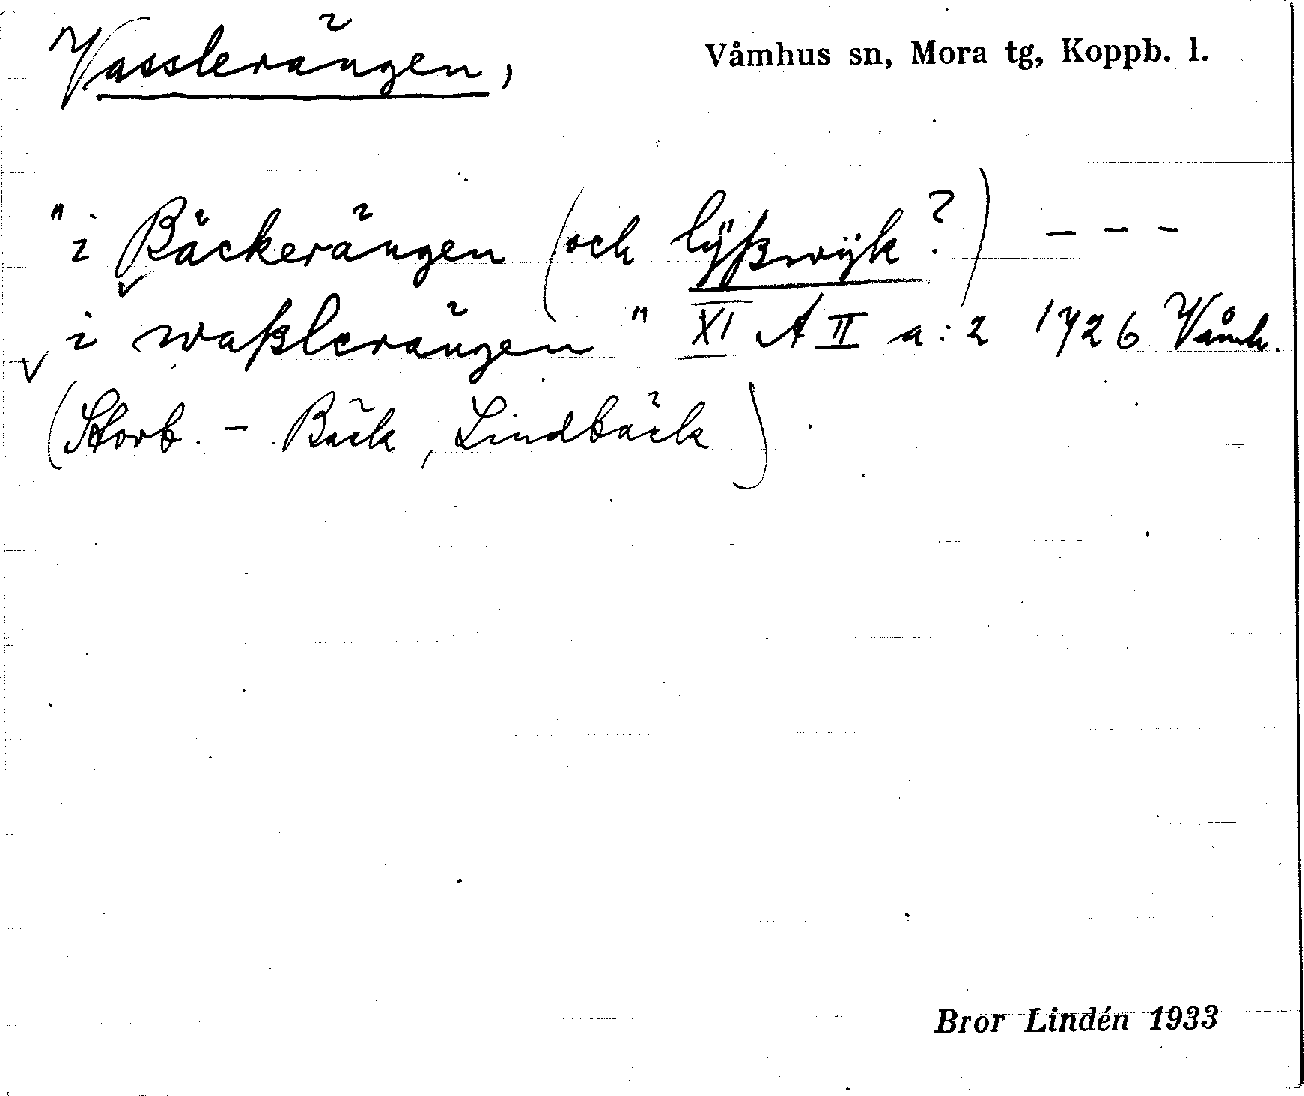 Vasslerängen,
Våmhus sn, Mora tg, Koppb. l.
"i Bäckerängen (och lÿßwÿk?) - - -
i waßlerängen" XI A II a:2 1726 Våmh.
(Storb. - Bäck, Lindbäck)
Bror Lindén 1933